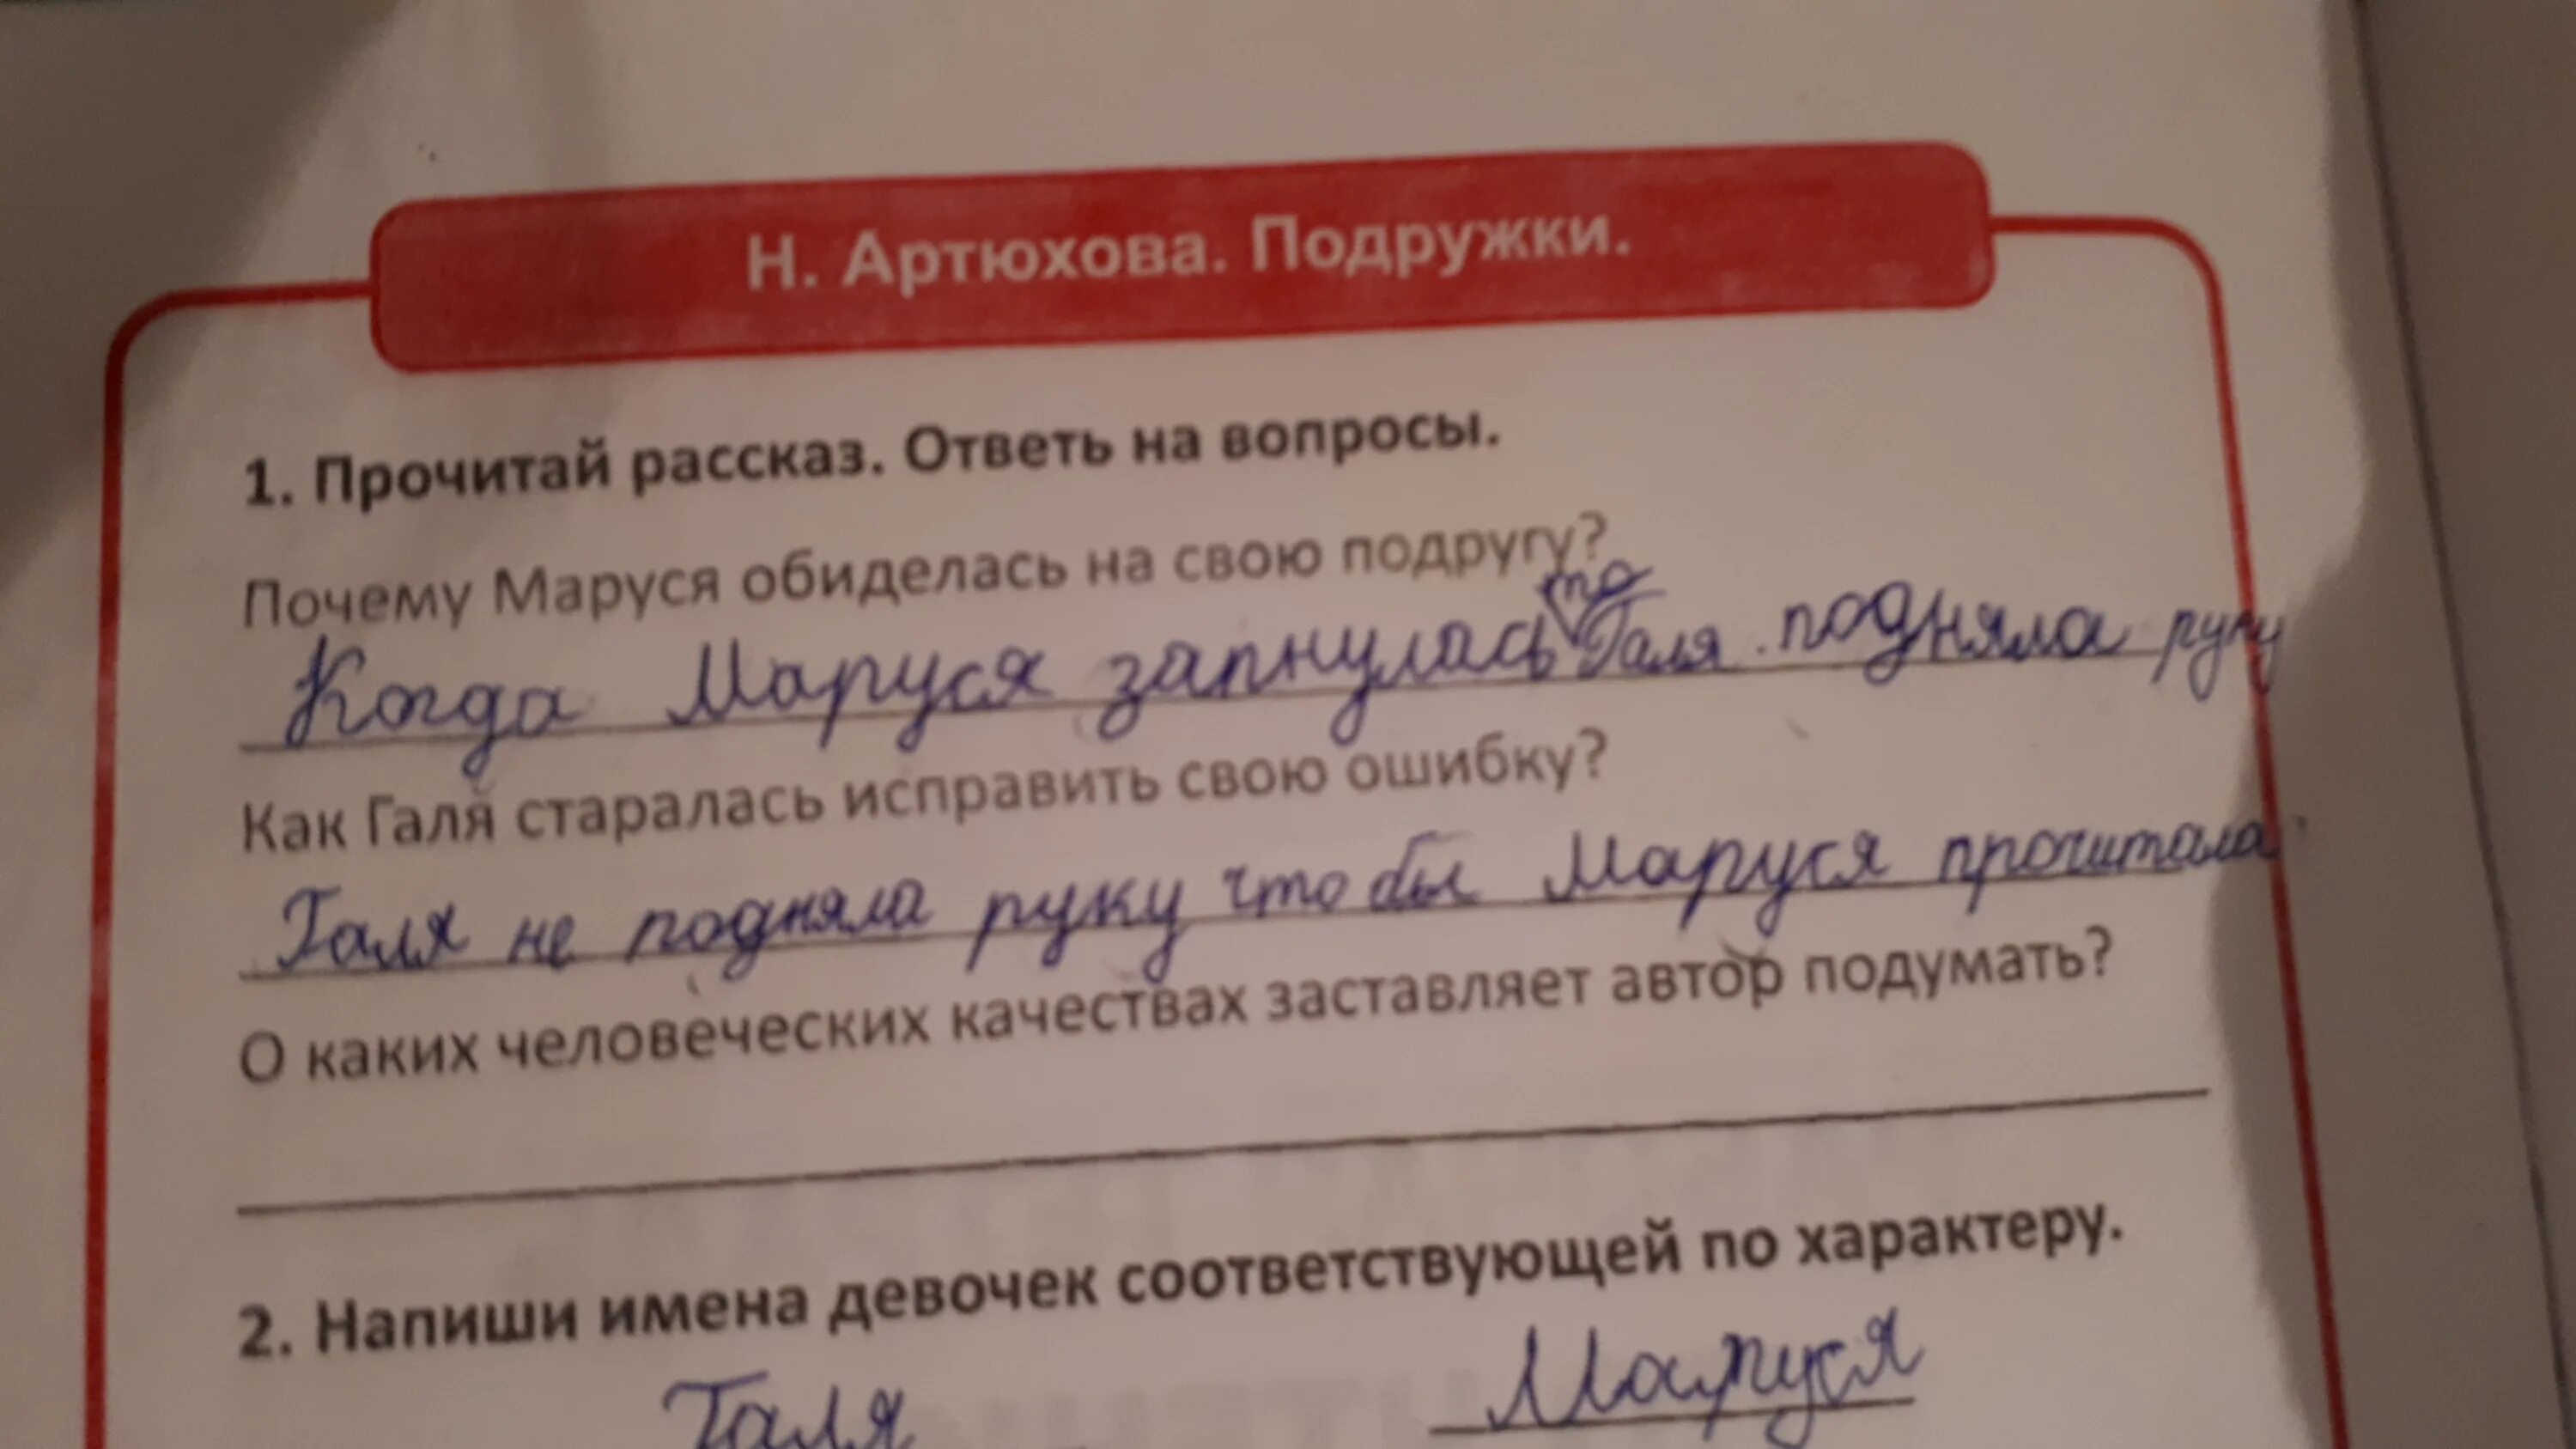 Н. Артюхова. Подружки.
1. Прочитай рассказ. Ответь на вопросы.
Почему Маруся обиделась на свою подругу?
то
Когда Маруся запнулась Галя подняла руку
Как Галя старалась исправить свою ошибку?
Галя не подняла руку что бы Маруся прочитала
О каких человеческих качествах заставляет автор подумать?
2. Напиши имена девочек соответствующей по характеру.
Галя Маруся